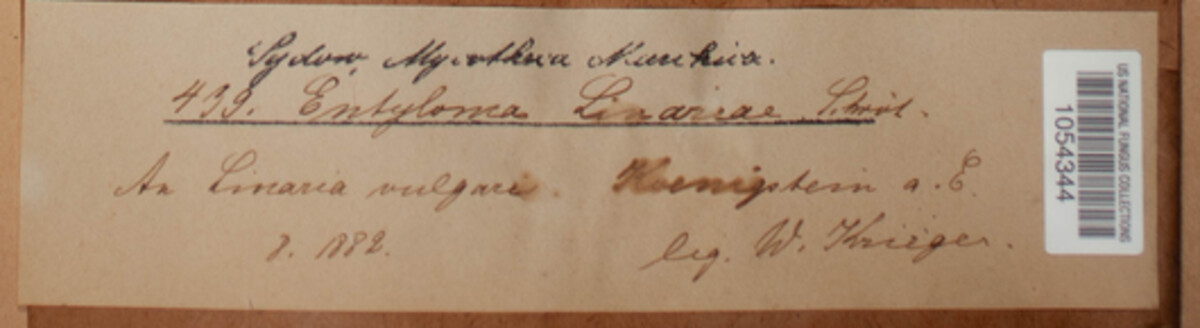 Sydow, Mycotheca Marchica.
439. Entyloma Linariae Schröt.
An Linaria vulgaris. Koenigstein a. E.
8. 1882.
leg. W. Krieger.
US NATIONAL FUNGUS COLLECTIONS
1054344